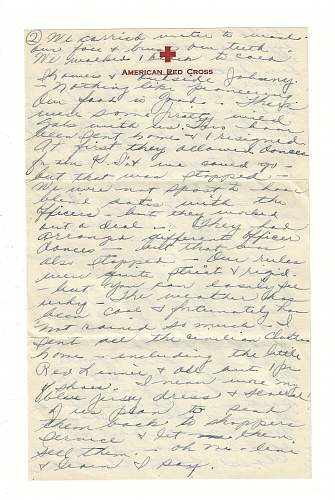 ② We carried water to wash
our face & brush our teeth.
We walked a block to cold
AMERICAN RED CROSS
showers & outside Johnny.
- Nothing like pioneering
Our food is good. - There
were some pretty weird
gals with us. Two have
been sent home & resigned.
At first they allowed dances
for the G.I.s & we could go
but that was stopped -
We were not sport to have
blind dates with the
officers - but they worked
out a deal -. They had
arranged different officer
dances - but that was
also stopped - Our rules
were quite strict & rigid.
- but you can easily see
why - The weather has
been cool & fortunately has
not rained so much - I
sent all the civilian clothes
home - including the little
Red & all but
shoes. I mean wore my
blue Jersey dress & several
I was plan to send
them back to shoppers
Service & let them
sell them. - oh me - live
& learn I say.